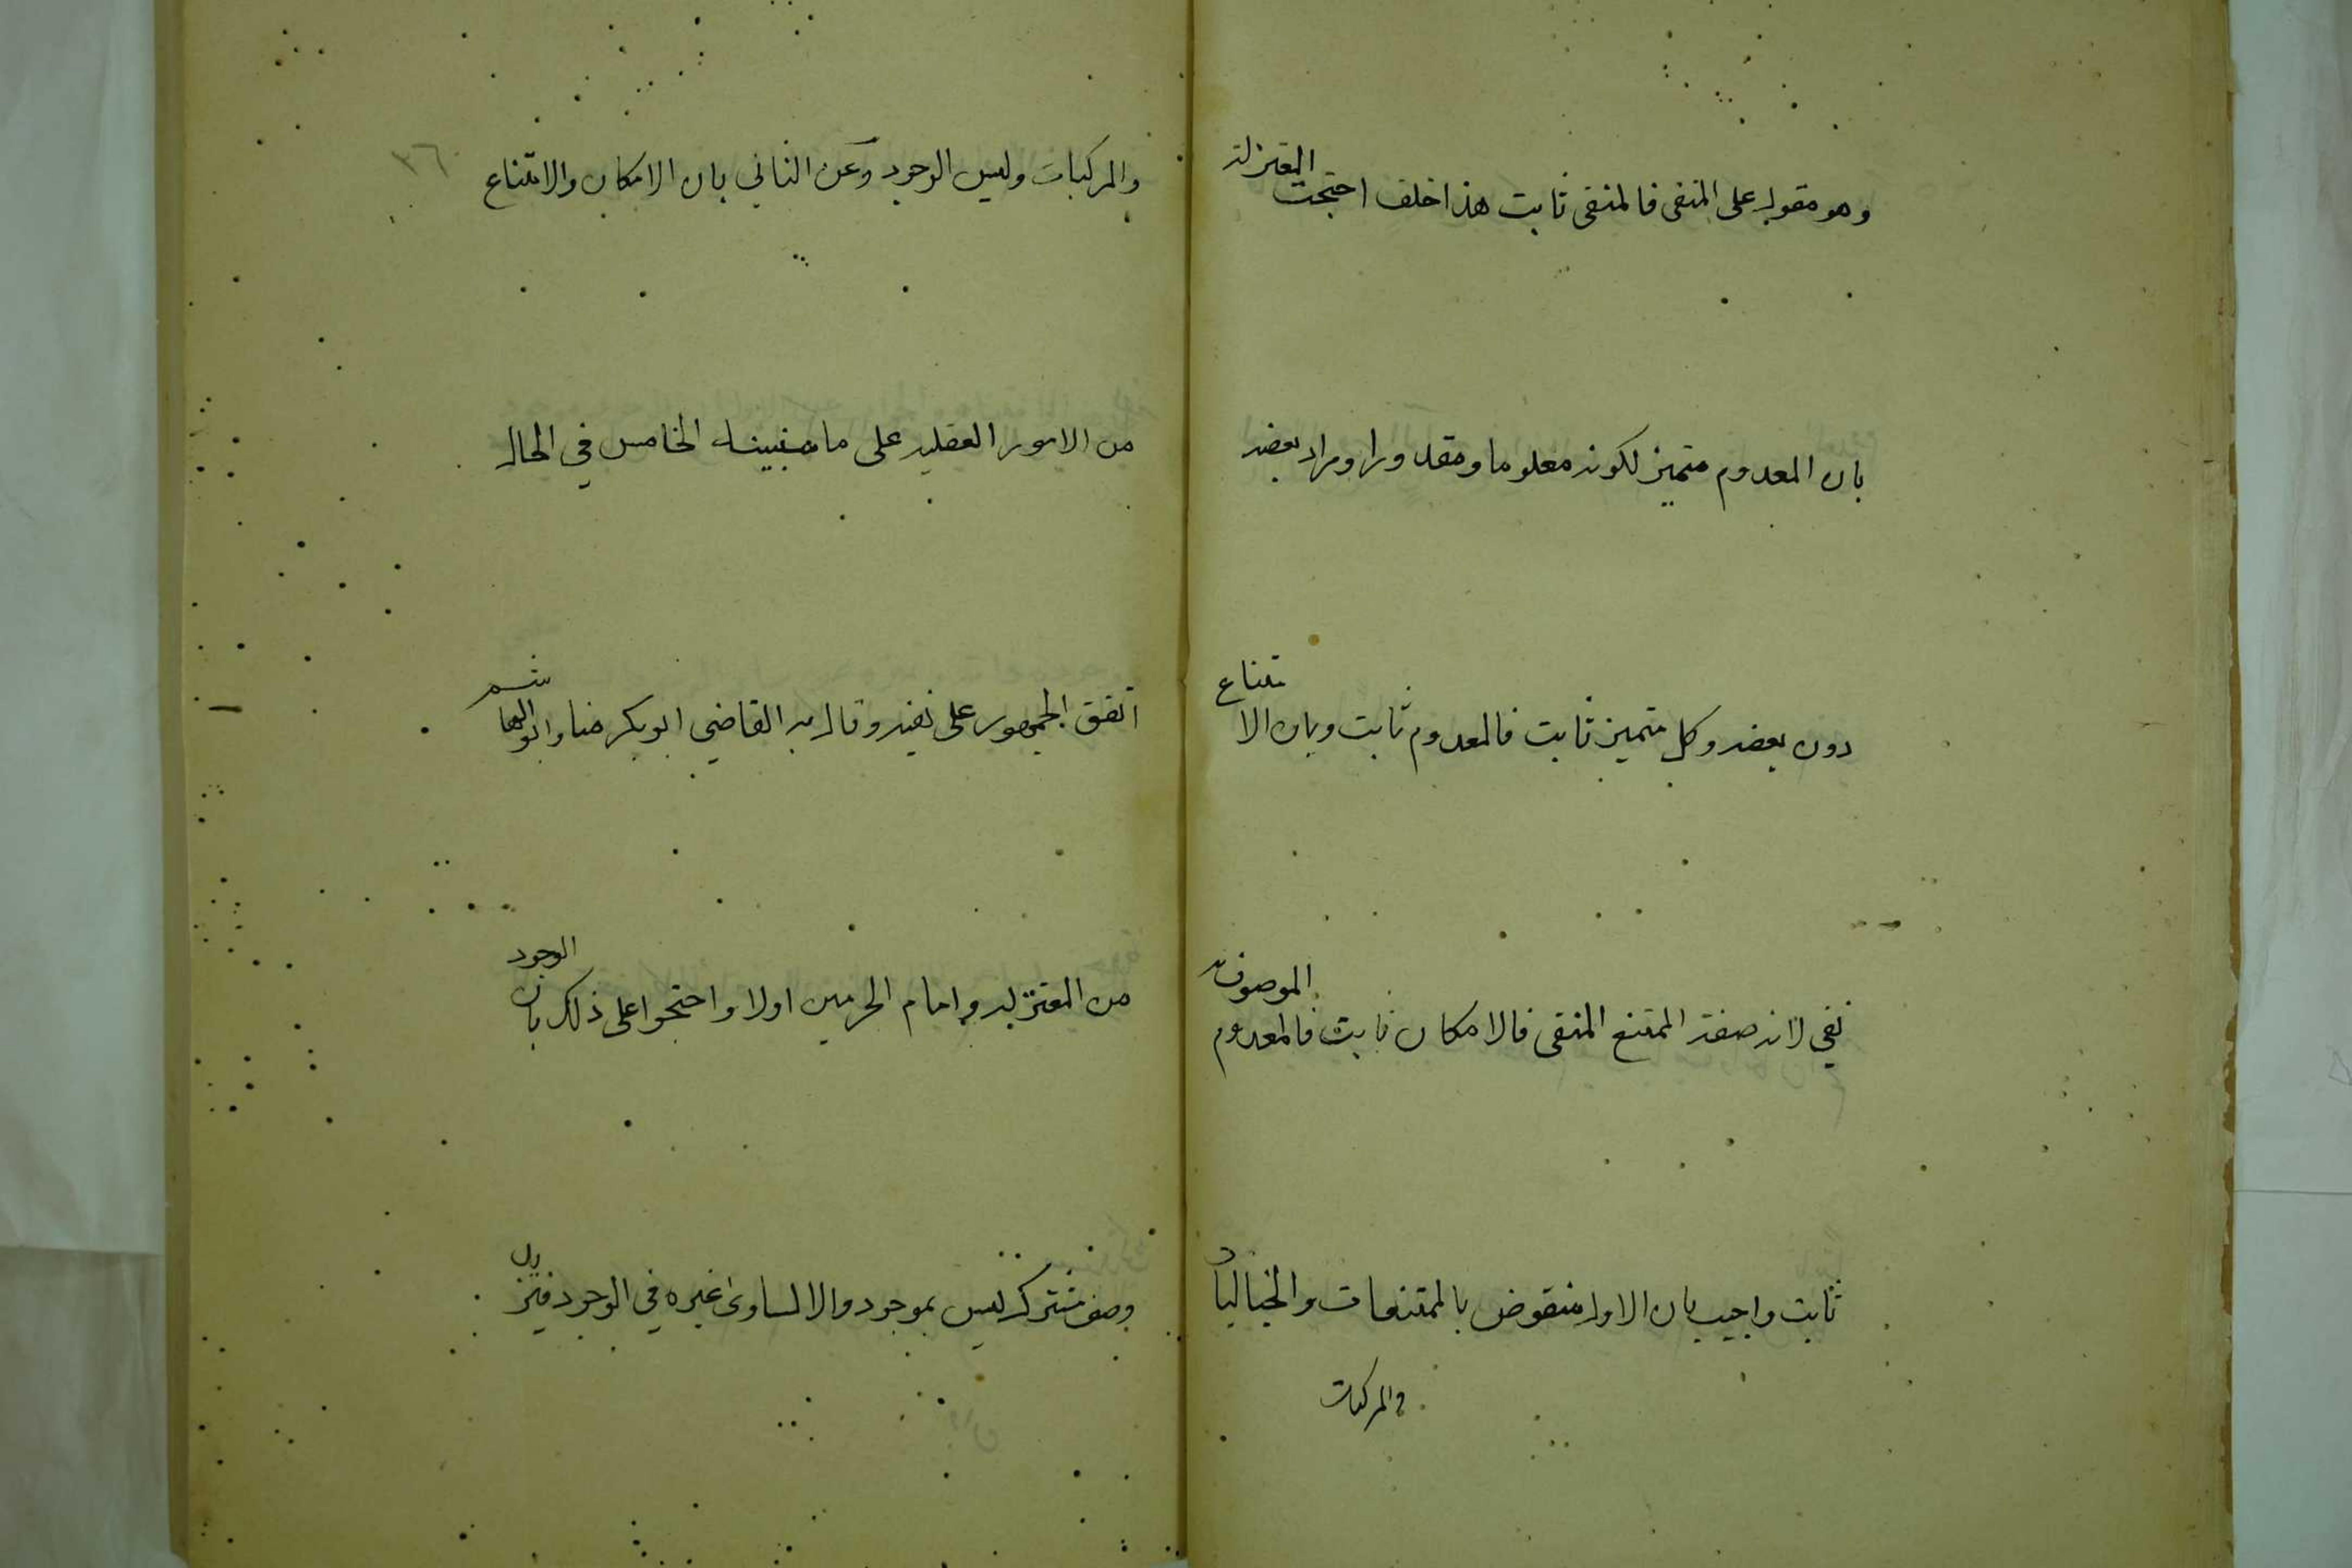 وهو مقول على المنفى فالمنفى ثابت هذا خلف احتجت المعتزلة
بان المعدوم متميز لكونه معلوما ومقدورا ومراد بعضه
دون بعضه وكل متميز ثابت فالمعدوم ثابت وبان الامتناع
نفي لانه صفة الممتنع المنفى فالامكان ثابت فالمعدوم الموصوف به
ثابت واجيب بان الاول منقوض بالممتنعات والخياليات
والمركبات
٣٦
والمركبات وليس الوجود وعن الثاني بان الامكان والامتناع
من الامور العقلية على ما سنبينه الخامس في الحال
اتفق الجمهور على نفيه وقال به القاضي ابو بكر منا وابو الهاشم
من المعتزلة وامام الحرمين اولا واحتجوا على ذلك بان الوجود
وصف مشترك ليس بموجود والا لساوى غيره في الوجود فيزيد